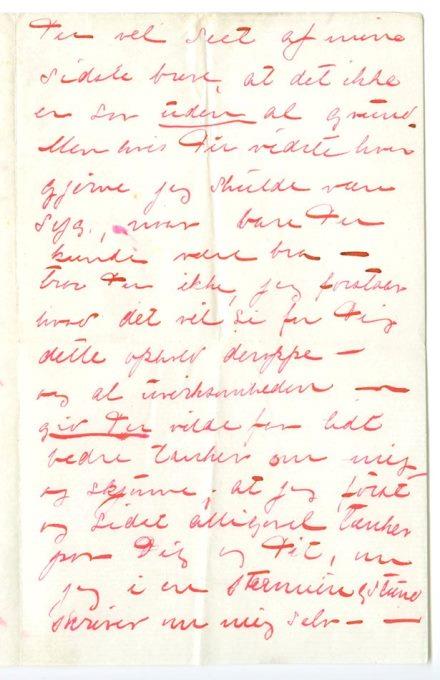 Du vel seet af mine
sidste breve, at det ikke
er saa uden al grund
Men hvis Du vidste hvor
gjerne jeg skulde være
syg, naar bare Du
kunde være bra —
tror Du ikke, jeg forstaar
hvad det vil si for Dig
dette ophold deroppe —
og al uvirksomheden —
gid Du vilde faa lidt
bedre tanker om mig
og skjønne, at jeg først
og sidst alligevel tænker
paa Dig og Dit, om
jeg i en stemningsstund
skriver om mig selv — —